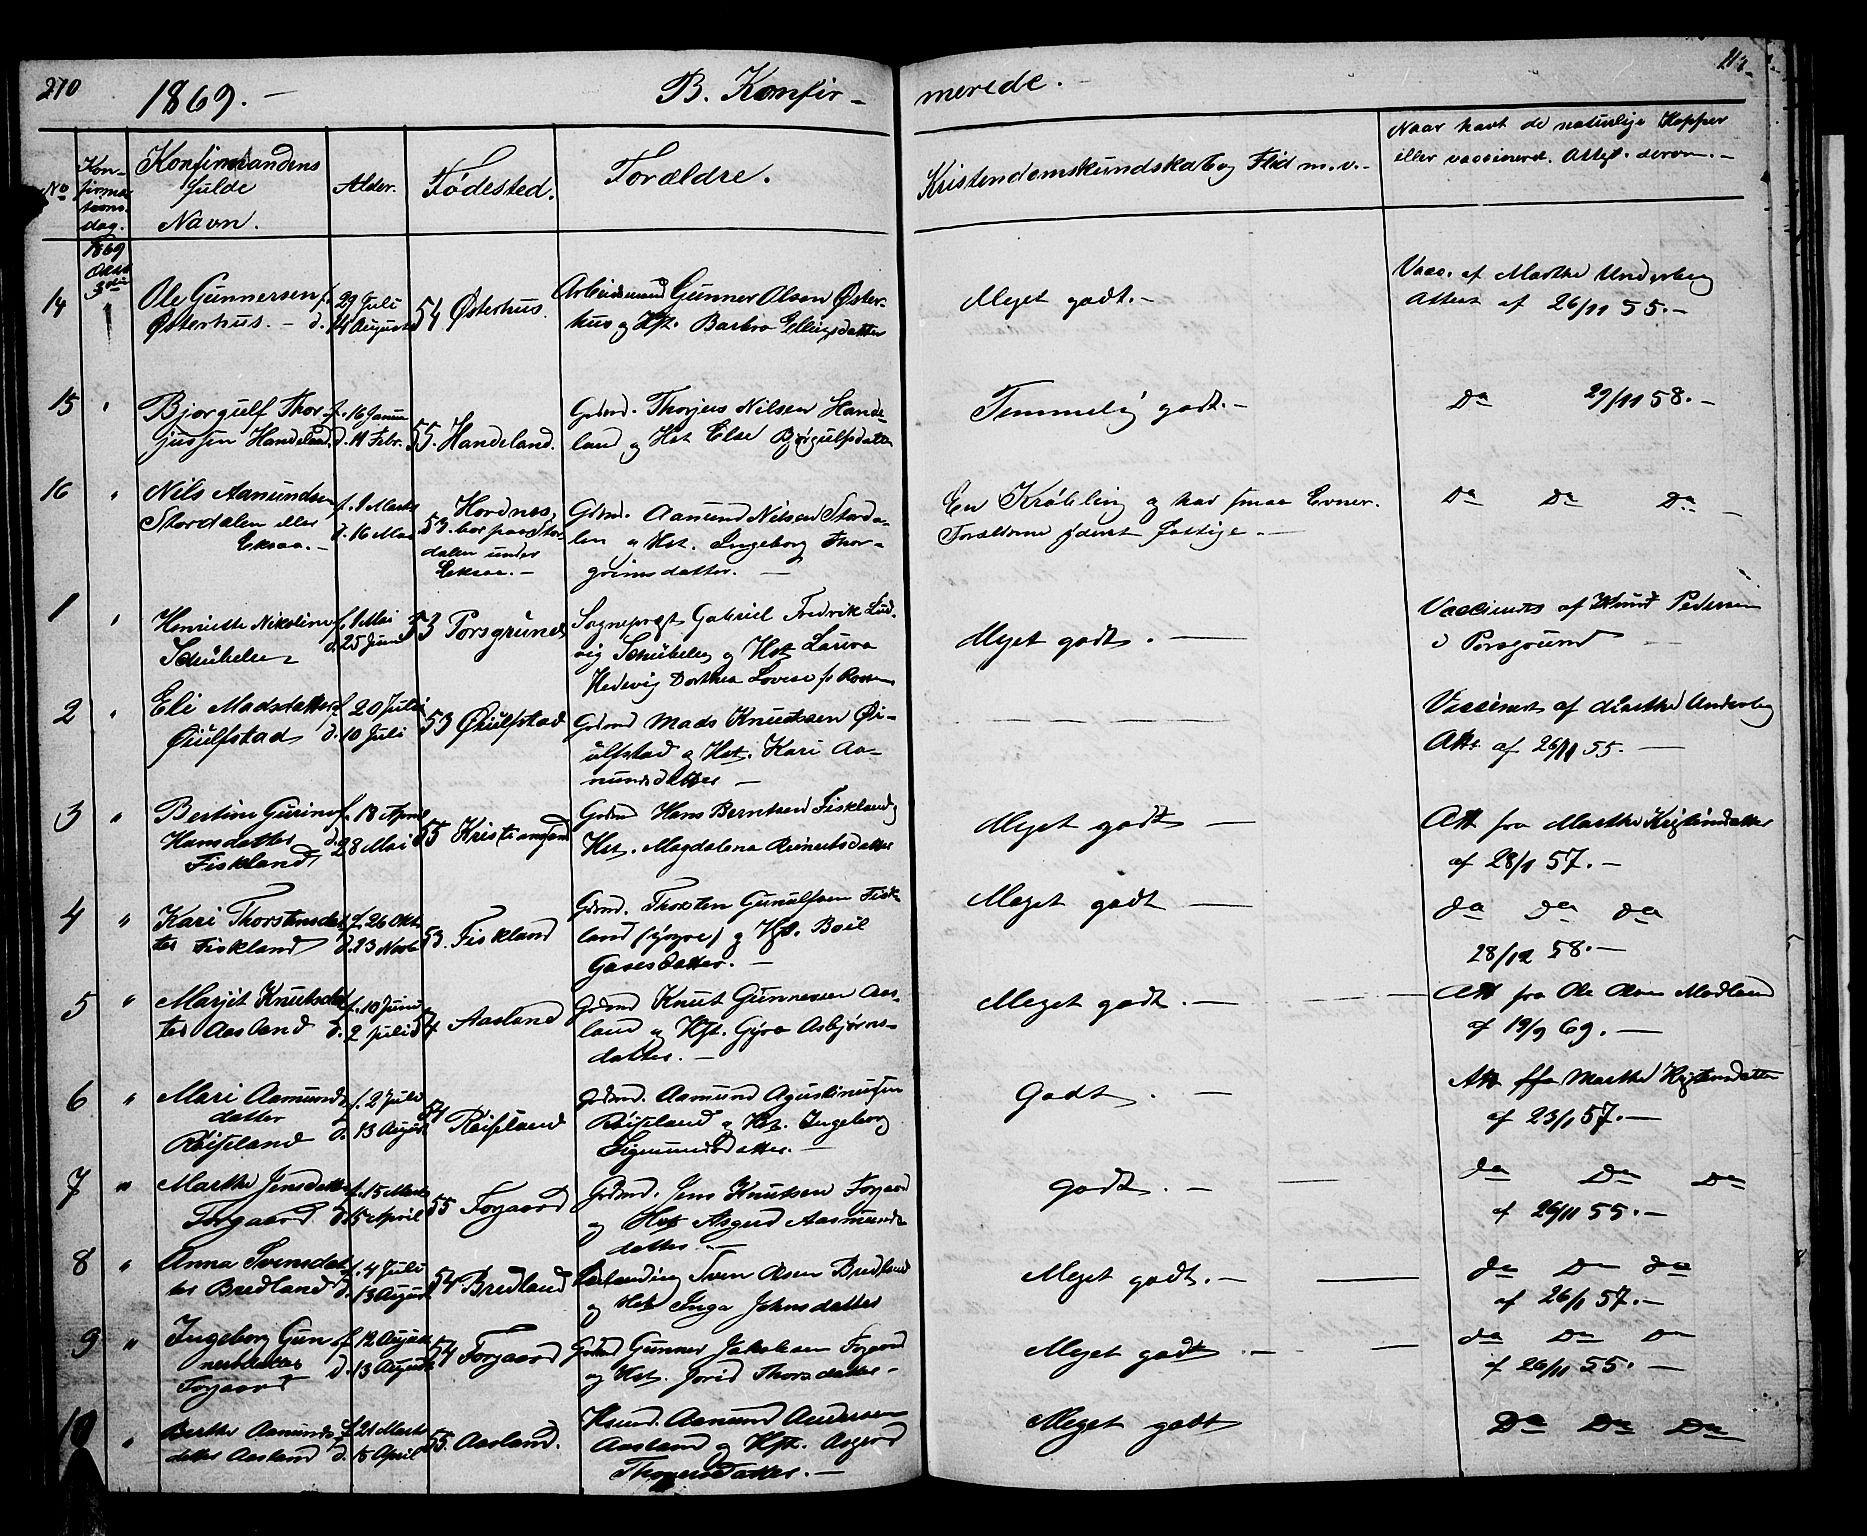 210
1869. –
B. Konfir-
merede.
No
Kon-
firma-
tions-
dag.
Konfirmandens
fulde
Navn.
Alder.
Fødested.
Forældre.
Kristendomskundskab og Flid m. v. –
Naar havt de naturlige Kopper
eller vaccineret. Attest derom. –
1869
3die
14
Ole Gunnersen
Østerhus. –
f. 29 Juli
d. 14 August
54 Østerhus.
Arbeidsmand Gunner Olsen Øster-
hus og Hst. Barbro Ellingsdatter
Meget godt. –
Vacc. af Marthe Underberg
Attest af 26/11 55. –
15
Bjorgulf Thor-
gjussen Handeland.
f. 16 Januar
d. 11 Febr.
55. Handeland.
Grdmd. Thorjus Nilsen Hande-
land og Hst Else Bjørgulfsdatter
Temmelig godt. –
Da 29/11 58. –
16
Nils Aamundsen
Stordalen eller
Eksaa. –
f. 1 Marts
d. 16 Mai
Hordnes,
53. bor paa Stor
dalen under
Eksaa. –
Grdmd. Aamund Nilsen Storda-
len og Hst. Ingeborg Thor-
grimsdatter. –
En Krøbling og har smaa Evner.
Forældrene yderst fattige. –
Da Da Da –
1
Henriette Nikoline
Schübeler
f. 1 Mai
d. 25 Juni
53 Porsgrund
Sogneprest Gabriel Fredrik Lud-
vig Schübeler og Hst Laura
Hedevig Dorthea Lovise f.
Meget godt. –
Vaccineret af Knud Pedersen
i Porsgrund –
2
Eli Madsdatter
Øiulfstad
f. 20 Juli
d. 10 Juli
53 Øiulfstad
Grdmd Mads Knutsen Øi-
ulfstad og Hst. Kari Aa-
mundsdatter –
Vaccineret af Marthe Underberg
Att. af 26/11 55. –
3
Bertine Gurine
Hansdatter
Fiskland
f. 18 April
d. 28 Mai
55 Kristiansand
Grdmd Hans Berntsen Fiskland og
Hst. Magdalena Reinertsdatter
Meget godt –
Att fra Marthe Kristensdatter
af 28/1 57. –
4
Kari Thorstensdat
ter Fiskland
f. 26 Okt
d. 23 Novb
53. Fiskland
Grdmd. Thorsten Gunulfsen Fisk-
land (yngre) og Hst. Boil
Gasesdatter. –
Meget godt –
da Da da
28/12 58. –
5
Marjit Knutsdat
ter Aasland
f. 10 Juni
d. 2 Juli
54 Aasland
Grdmd Knut Gunnersen Aas-
land og Hst. Gyro Asbjørns-
datter. –
Meget godt. –
Att fra Ole Olsen Modland
af 19/9 69. –
6
Mari Aamunds
datter
Røisland
f. 2 Juli
d. 13 August
54 Røisland
Grdmd. Aamund Agustinussen
Røisland og Hst. Ingeborg
Sigmundsdatter. –
Godt. –
Att fra Marthe Kristensdatter
af 23/1 57. –
7
Marthe Jensdatter
Forgaard
f. 15 Marts
d. 15 April
55 Forgaard
Grdmd. Jens Knutsen Forgaard
og Hst Asgerd Aasmunds
datter. –
godt. –
da Da Da
af 26/11 55. –
8
Anna Svensdat
ter Bredland
f. 4 Juli
d. 13 August
54. Bredland
Sven Olsen Bredland
og Hst Inga Johnsdatter
Meget godt. –
da Da da
af 26/1 57. –
9
Ingeborg Gun
nersdatter
Forgaard
f. 12 August
d. 13 August
54 Forgaard
Grdmd Gunner Jakobsen Forgaard
og Hst. Jorid Thorsdatter –
Meget godt. –
da Da Da
af 26/11 55. –
10
Berthe Aamunds
datter Aasland
f. 21 Marts
d. 15 April
55. Aasland.
Husmd. Aamund Andersen
Aasland og Hst. Asgerd
Thorjusdatter. –
Meget godt
Da Da Da